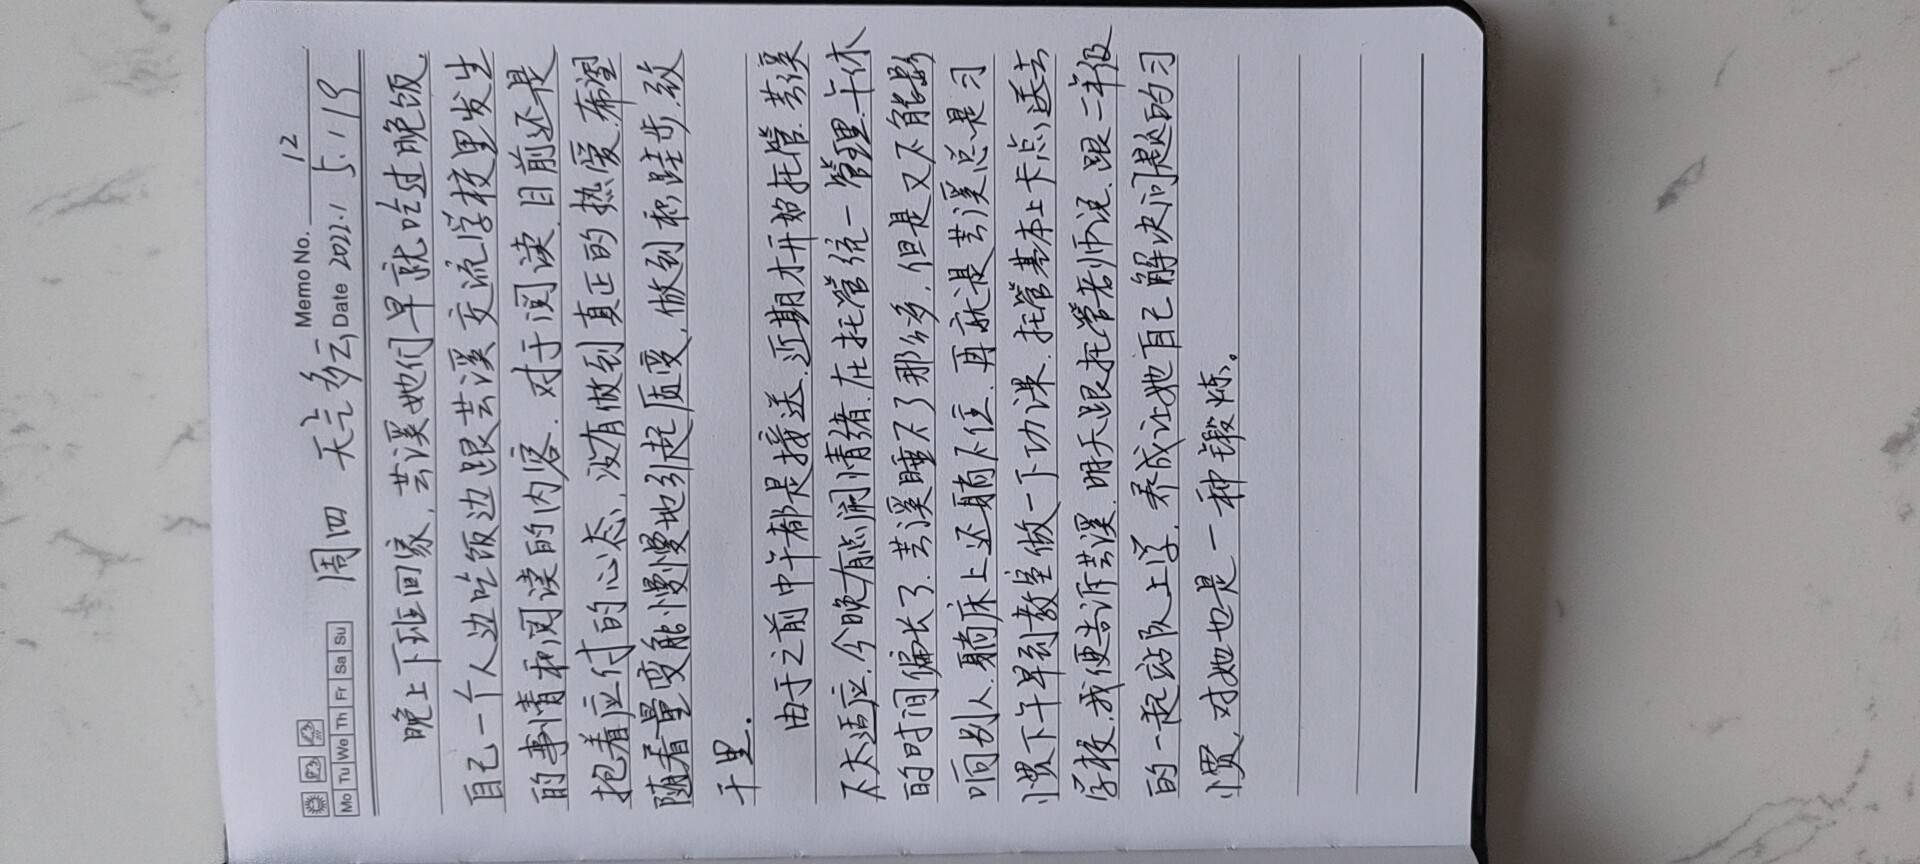 Mo Tu We Th Fr Sa Su
Memo No. 12
周四 天气多云 Date 2022.1 5.19
晚上下班回家,芸溪她们早就吃过晚饭.
自己一个人边吃饭边跟芸溪交流学校里发生
的事情和阅读的内容.对于阅读,目前还是
抱着应付的心态,没有做到真正的热爱.希望
随着量变能慢慢地引起质变,做到积跬步.致
千里.
由于之前中午都是接送.近期才开始托管.芸溪
不太适应.今晚有点闹情绪.在托管统一管理.午休
的时间偏长了.芸溪睡不了那么多,但是又不能影
响别人.躺床上还躺不住.再就是芸溪总是习
惯下午早到教室做一下功课.托管基本上卡点送去
学校.我便告诉芸溪.明天跟托管老师说.跟二年级
的一起站队上学.养成让她自己解决问题的习
惯,对她也是一种锻炼。